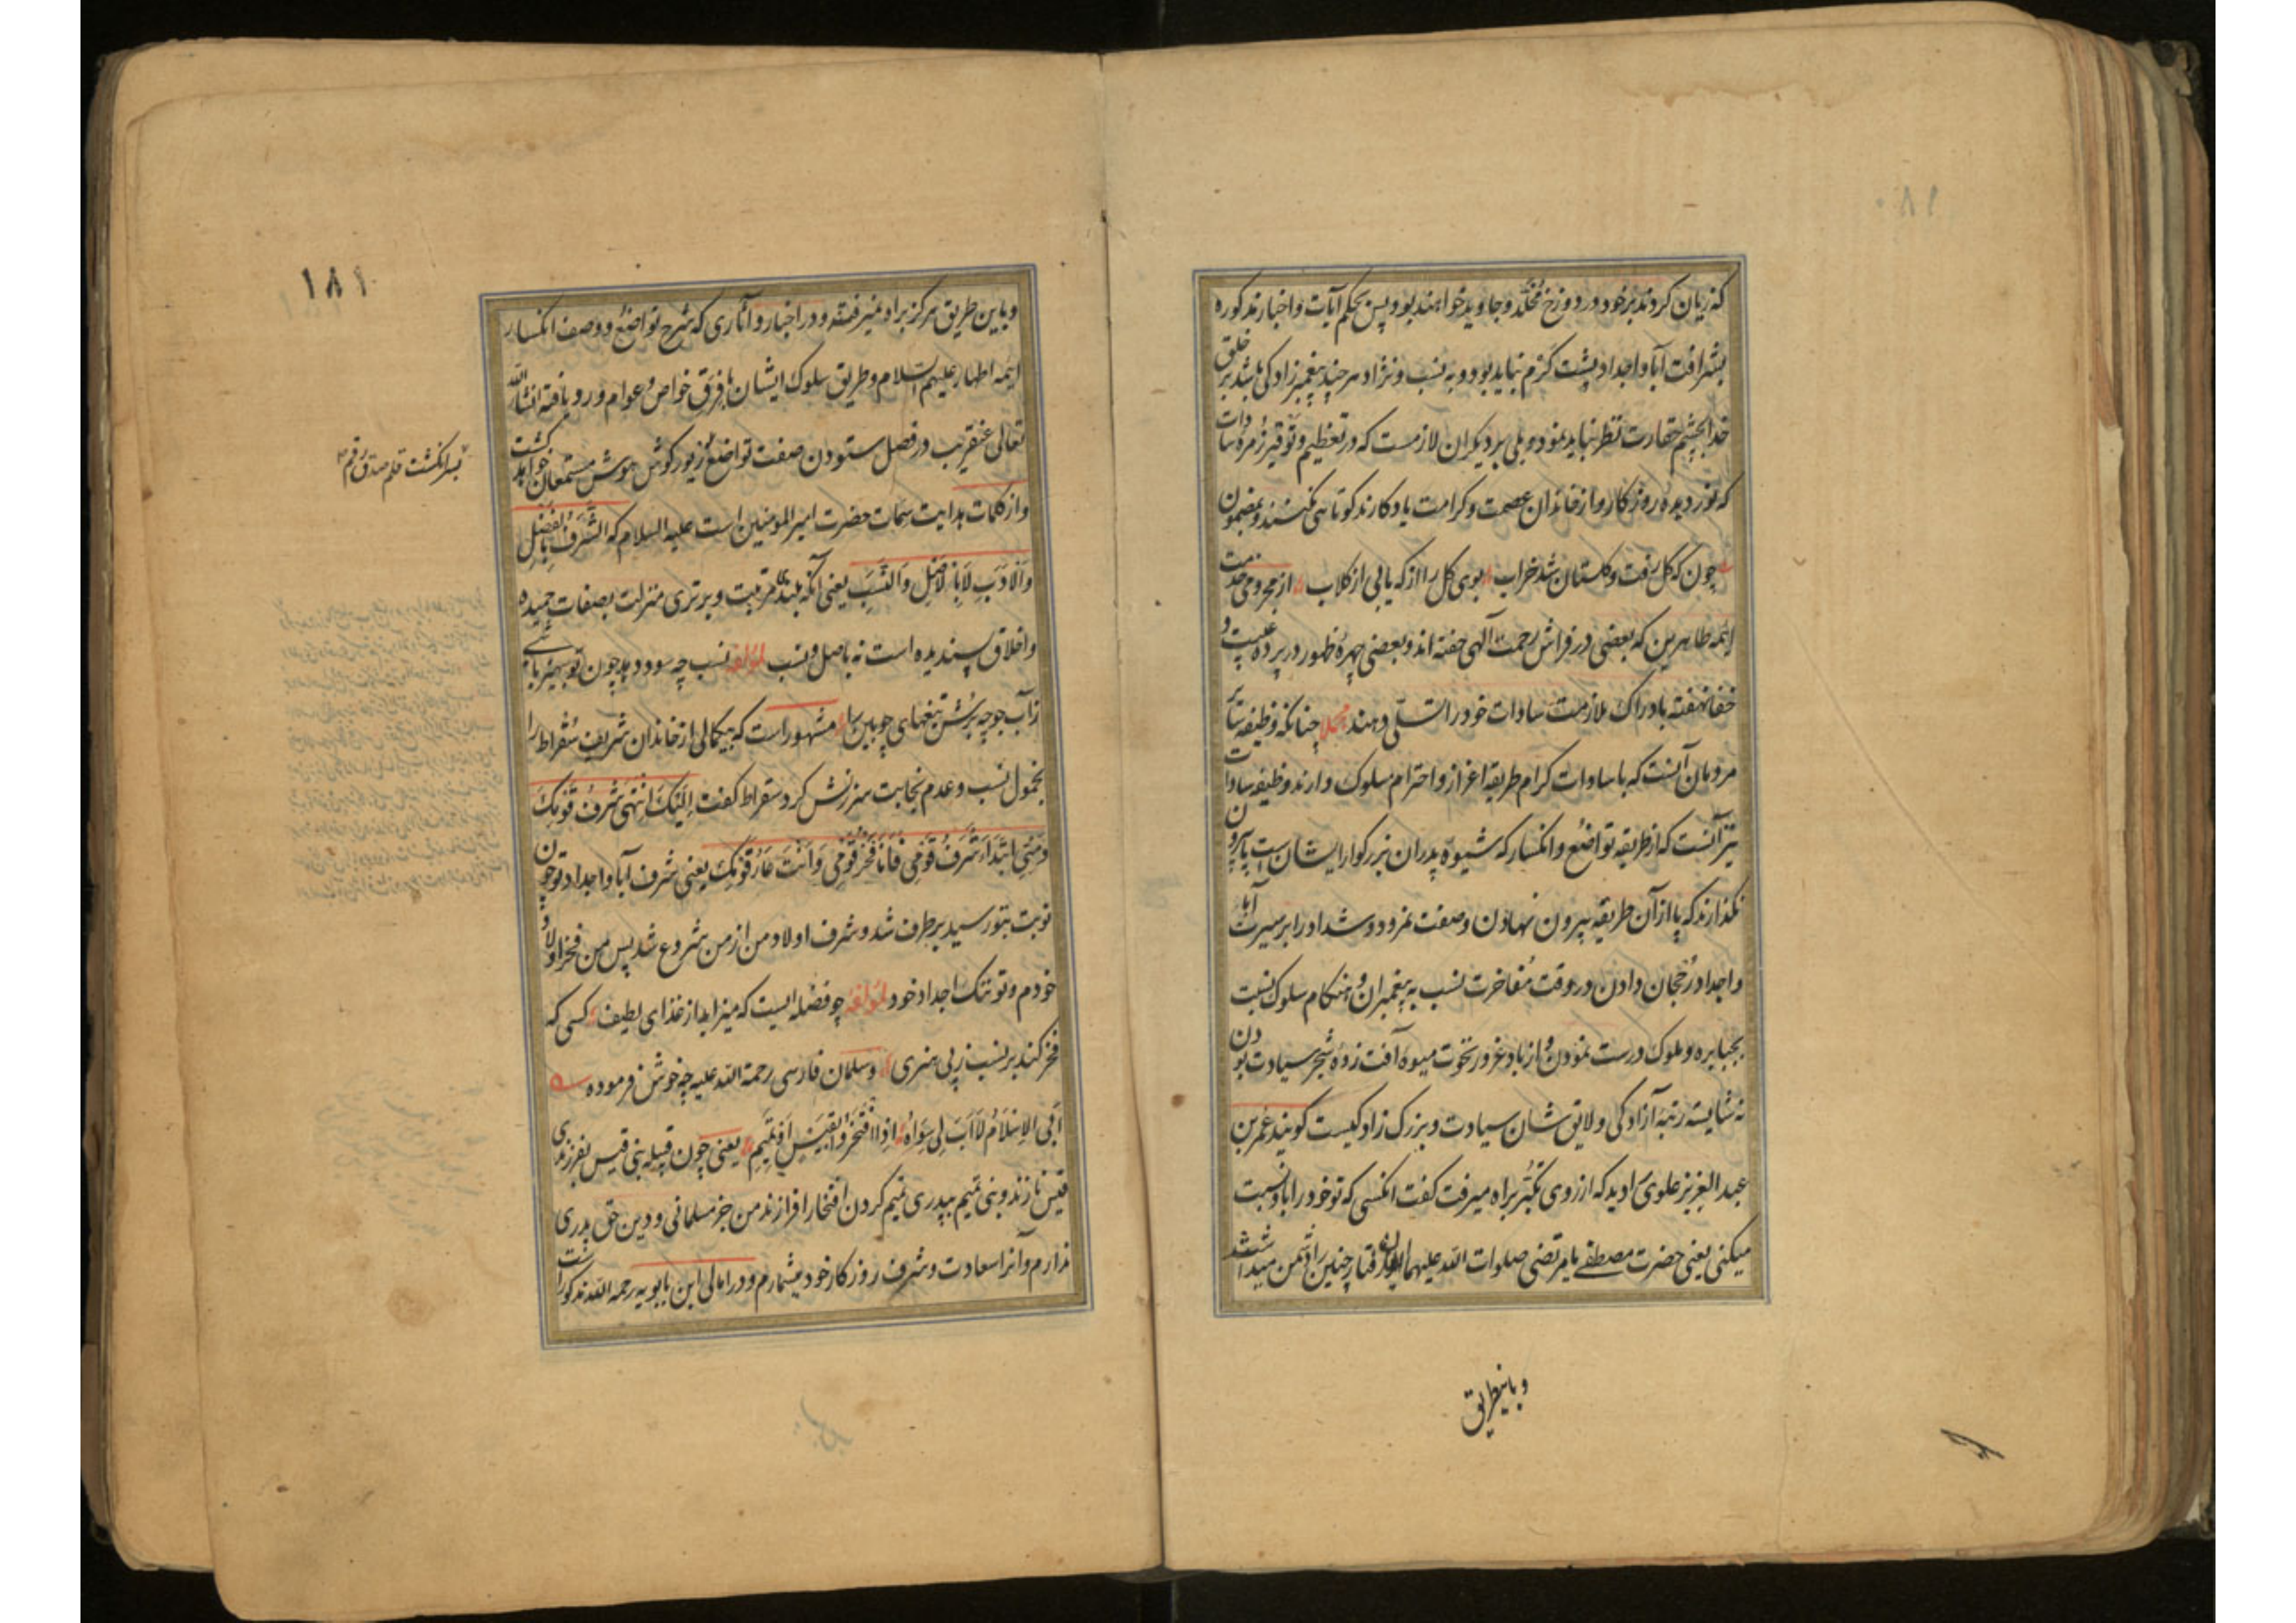 ۱۸۰
که زیان کردند بر خود و در دوزخ مخلّد و جاوید خواهند بود و پس بحکم آیات و اخبار مذکوره
بشرافت آبا و اجداد پشت گرم نباید بود و به نسب و نژاد هر چند پیغمبرزادگی باشد بر خلق
خدا بچشم حقارت نظر نباید نمود و بلی بر دیگران لازمست که در تعظیم و توقیر زمره سادات
که نور دیده روزگار و از خاندان عصمت و کرامت یادگارند کوتاهی نکنند و بمضمون
چون که گل رفت و گلستان شد خراب بوی گل را از که یابی از گلاب از محرومی خدمت
ائمه طاهرین که بعضی در فراش رحمت الهی خفته اند و بعضی چهره ظهور در پرده غیبت و
خفا نهفته بادراک ملازمت سادات خود را تسلّی دهند مجملا چنانکه وظیفه سایر
مردمان آنست که با سادات کرام طریقه اعزاز و احترام مسلوک دارند وظیفه سادات
نیز آنست که از طریقه تواضع و انکسار که شیوه پدران بزرگوار ایشان است پا بیرون
نگذارند که پا از آن طریقه بیرون نهادن و صفت نمرود و شداد را بر سیرت آبا
و اجداد رجحان دادن و در وقت مفاخرت نسب به پیغمبران و هنگام سلوک نسبت
بجبابره و ملوک درست نمودن و از باد غرور نخوت میوه آفت زده شجر سیادت بودن
نه شایسته رتبه آزادگی و لایق شان سیادت و بزرگ زادگیست گویند عمر بن
عبد العزیز علوی را دید که از روی تکبّر براه میرفت گفت انکسی که تو خود را باو نسبت
میکنی یعنی حضرت مصطفی یا مرتضی صلوات الله علیهما این رفتار چنین را دشمن میداشتند
و باینطریق
۱۸۱
و باین طریق هرگز براه نمیرفتند و در اخبار و آثاری که شرح تواضع و وصف انکسار
ائمه اطهار علیهم السلام و طریق سلوک ایشان با فرق خواص و عوام ورود یافته انشاء الله
تعالی عنقریب در فصل ستودن صفت تواضع زیور گوش هوش مستمعان خواهد گشت
بسرانگشت قلم صدق رقم
و از کلمات هدایت سمات حضرت امیر المومنین است علیه السلام که الشَّرَفُ بِالفَضْلِ
وَالاَدَبِ لاَ بِالاَصْلِ وَالنَّسَبِ یعنی آنکه بلندی مرتبت و برتری منزلت بصفات حمیده
و اخلاق پسندیده است نه باصل و نسب لمؤلفه نسب چه سود دهد چون تو بی هنر باشی
ز آب جو چه برش تیغهای چوبین را مشهور است که بیکمالی از خاندان شریف سقراط را
بخمول نسب و عدم نجابت سرزنش کرد سقراط گفت اِلَیْکَ انْتَهی شَرَفُ قَوْمِکَ
وَ مِنِّی ابْتَدَاءَ شَرَفُ قَوْمِی فَاَنَا فَخْرُ قَوْمِی وَاَنْتَ عَارُ قَوْمِکَ یعنی شرف آبا و اجداد تو چون
نوبت بتو رسید برطرف شد و شرف اولاد من از من شروع شد پس من فخر اولاد
خودم و تو ننگ اجداد خود لمؤلفه چو فضله ایست که میزاید از غذای لطیف کسی که
فخر کند بر نسب ز بی هنری و سلمان فارسی رحمة الله علیه چه خوش فرموده
اَبِی الاِسْلاَمُ لاَ اَبَ لِی سِوَاهُ اِذَا افْتَخَرُوا بِقَیْسٍ اَوْ تَمِیمِ یعنی چون قبیله بنی قیس بفرزندی
قیس نازند و بنی تمیم بپدری تمیم گردن افتخار افرازند من جز مسلمانی و دین حق پدری
ندارم و آنرا سعادت و شرف روزگار خود میشمارم و در امالی ابن بابویه رحمه الله مذکور است